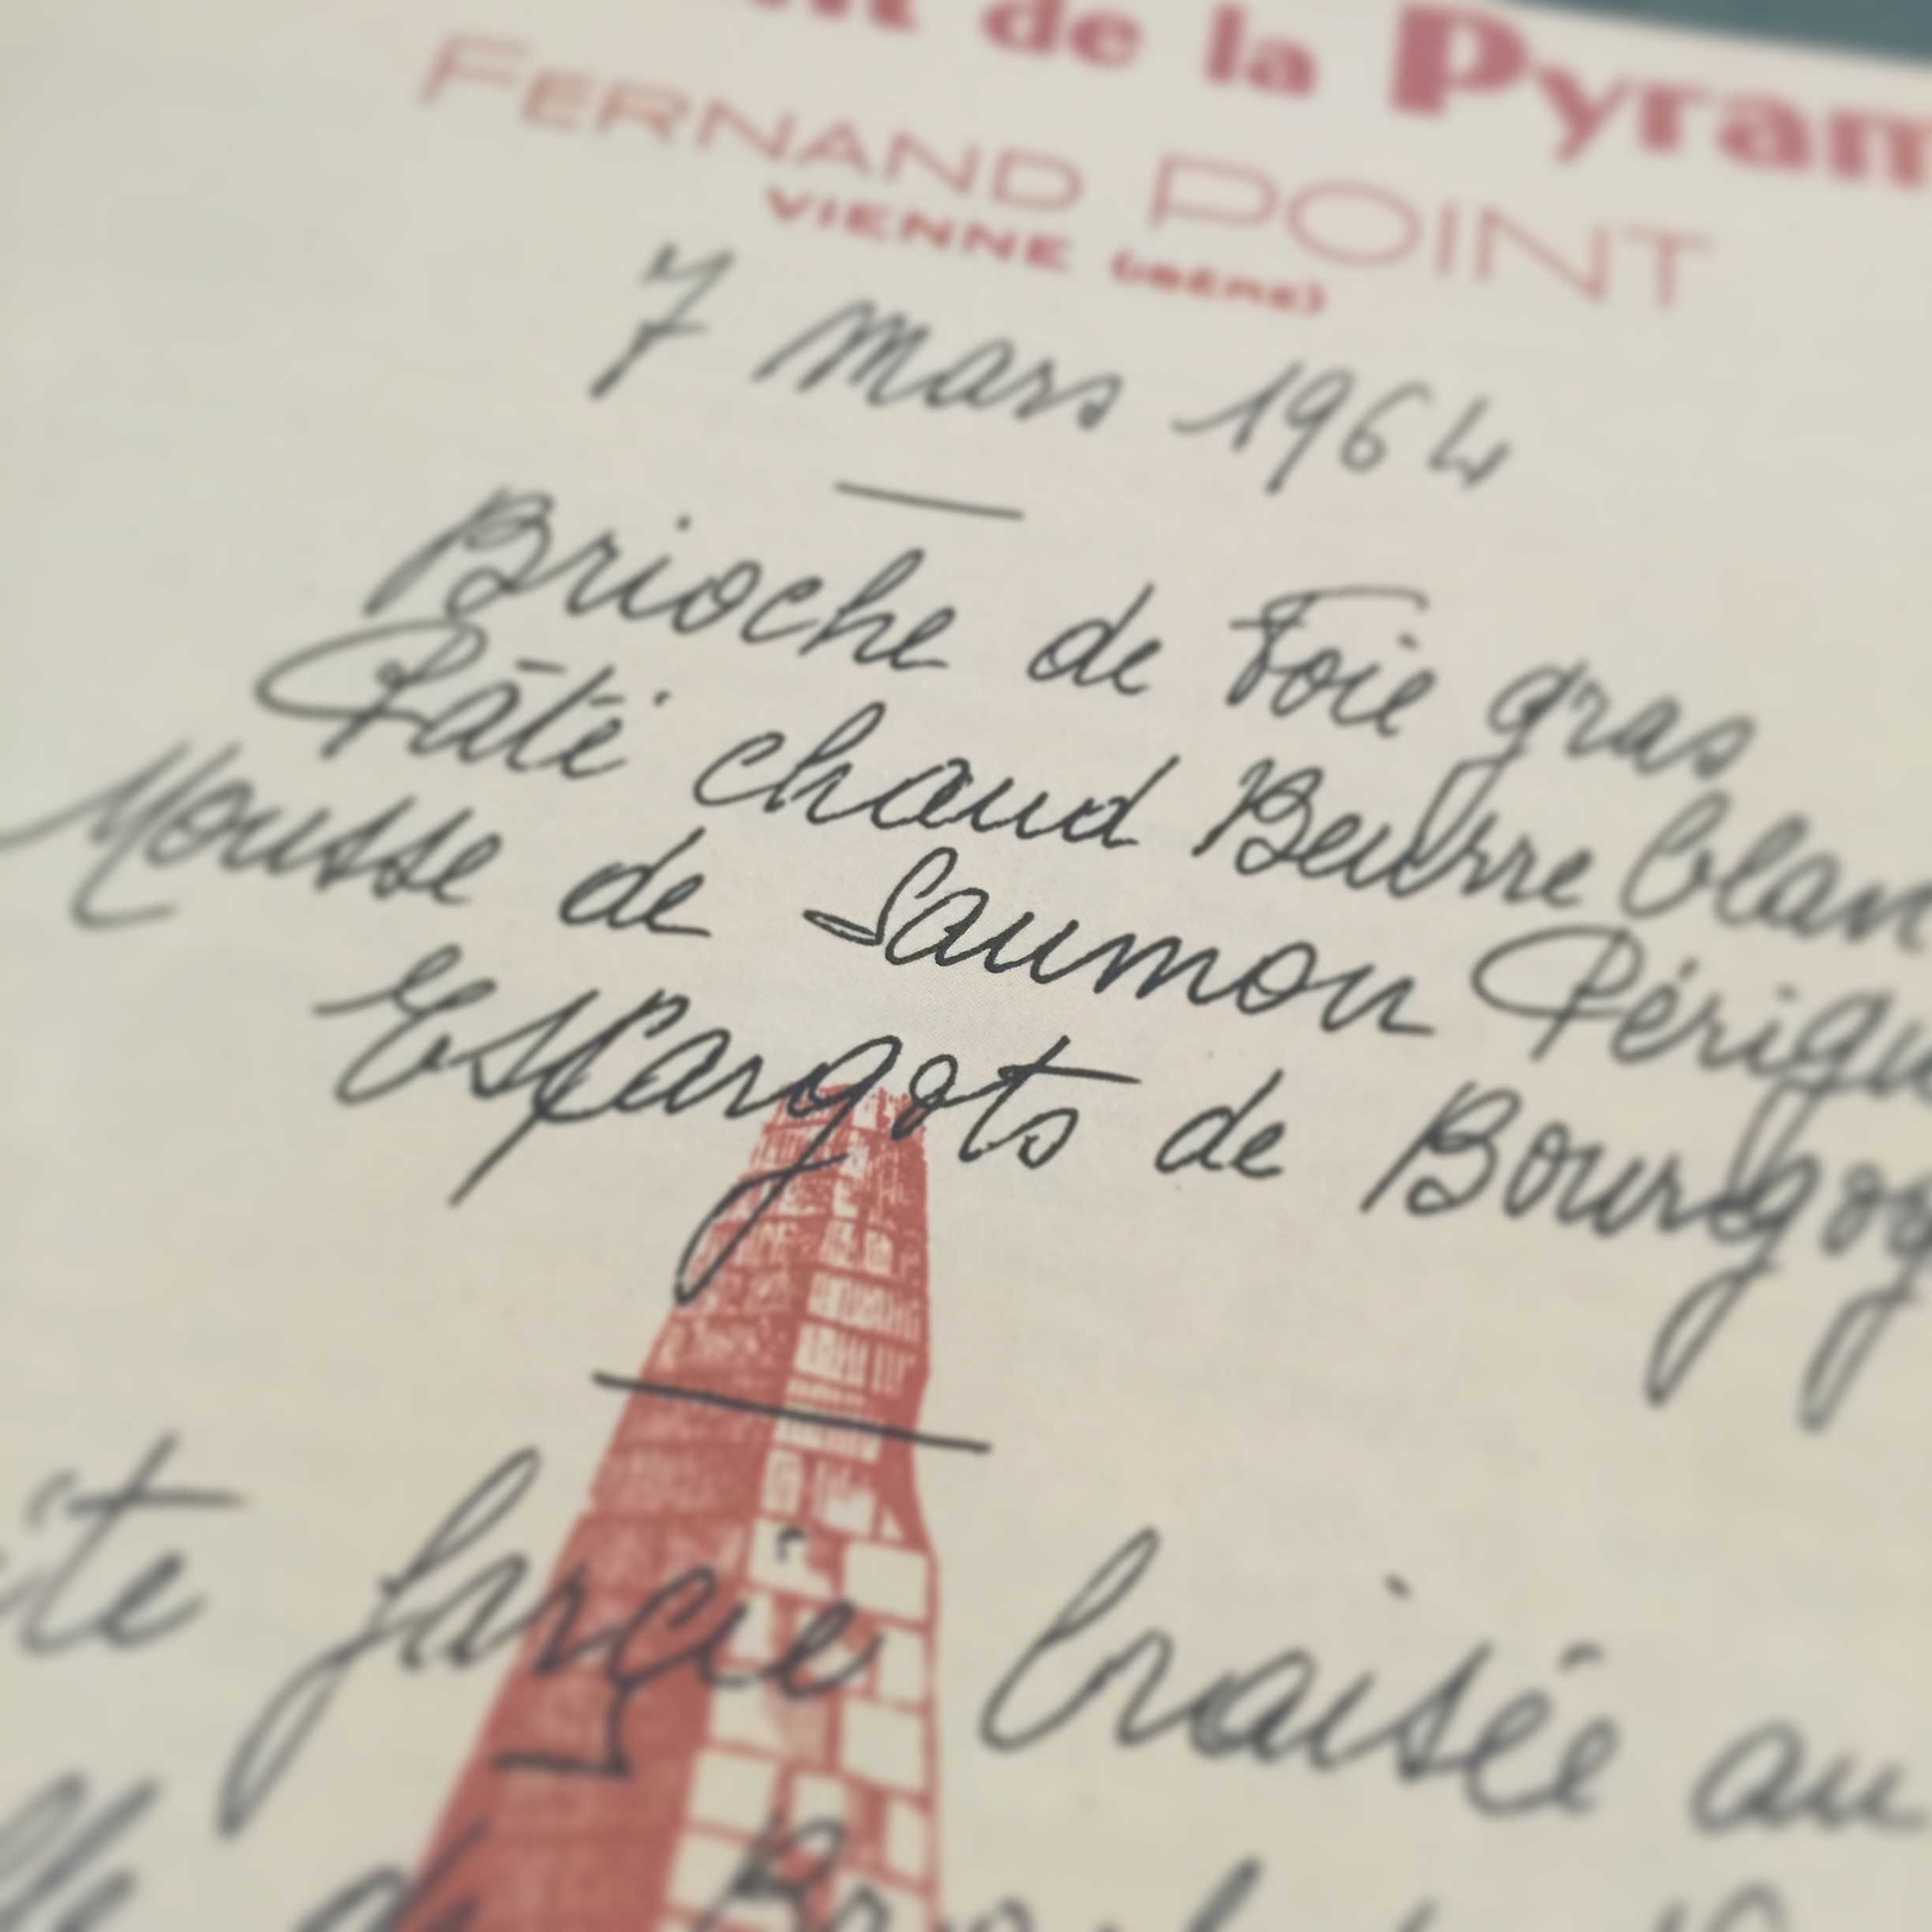 de la Pyram
FERNAND POINT
VIENNE (ISÈRE)
7 mars 1964
Brioche de Foie gras
Pâté chaud Beurre blan
Mousse de Saumon Périgu
Escargots de Bourgog
farcie braisée au
de